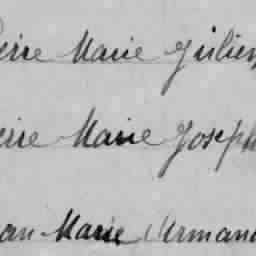 ierre Marie Julien
ierre Marie Joseph
ean Marie Armand